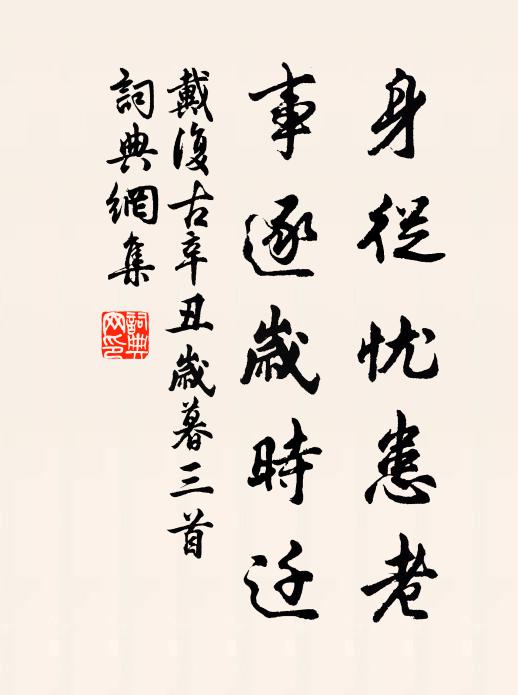 身從忧患老
事逐歲時迁
戴復古辛丑歲暮三首
詞典網集
詞典网印